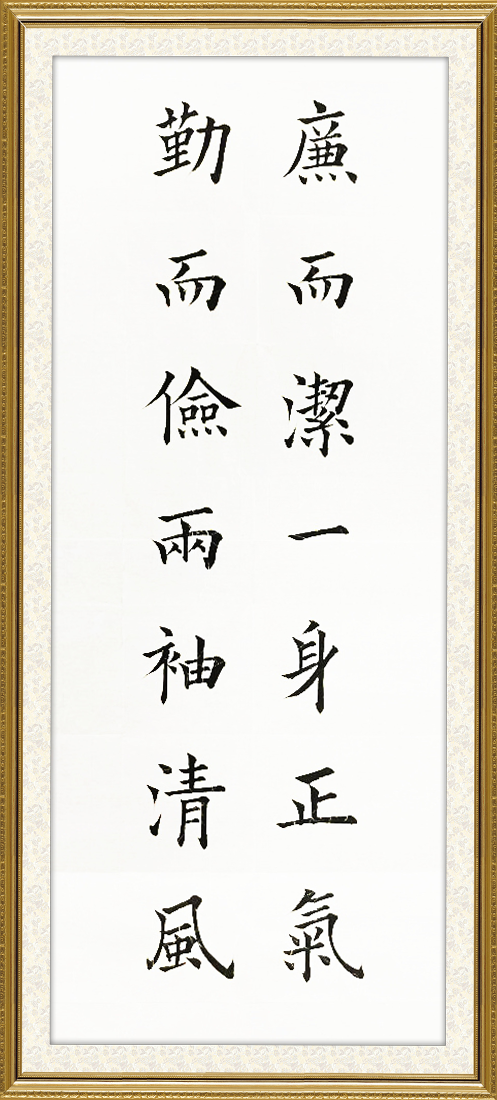 廉而潔一身正氣
勤而儉兩袖清風